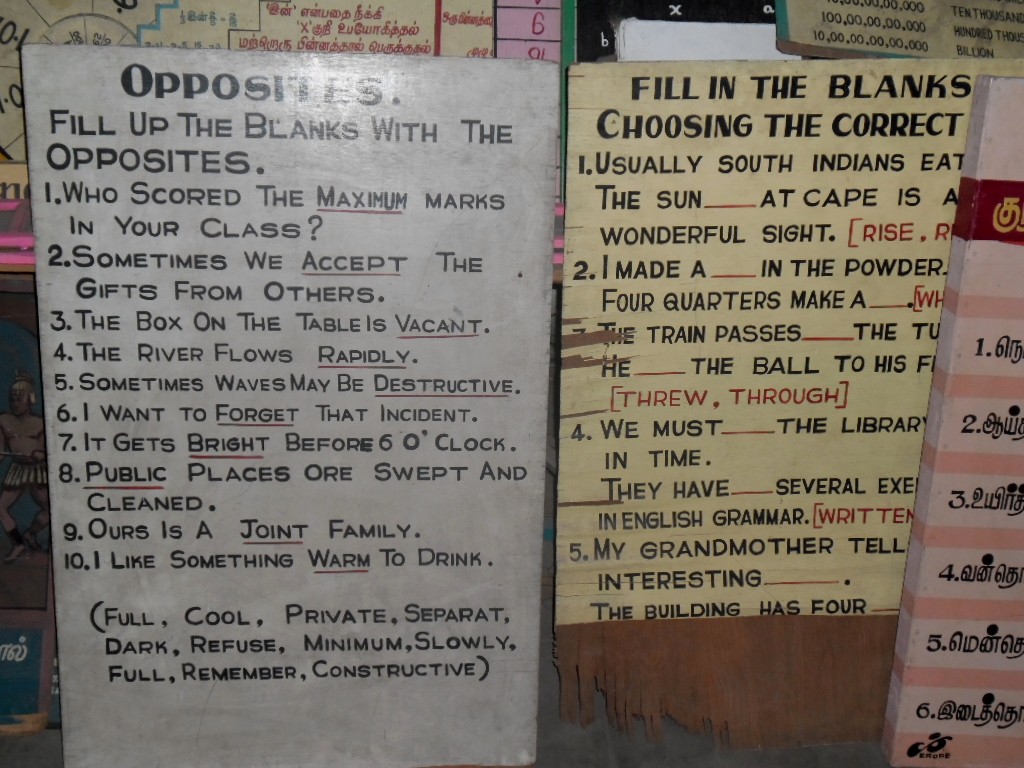 'இன்' என்பதை நீக்கி
'X'குறி உபயோகித்தல்
மற்றொரு பின்னத்தால் பெருக்குதல்
6
x
a
b
10,00,00,00,000
100,00,00,00,000
10,00,00,00,00,000
TEN THOUSAND
HUNDRED THOUS
BILLION
OPPOSITES.
FILL UP THE BLANKS WITH THE
OPPOSITES.
1. WHO SCORED THE MAXIMUM MARKS
IN YOUR CLASS?
2. SOMETIMES WE ACCEPT THE
GIFTS FROM OTHERS.
3. THE BOX ON THE TABLE IS VACANT.
4. THE RIVER FLOWS RAPIDLY.
5. SOMETIMES WAVES MAY BE DESTRUCTIVE.
6. I WANT TO FORGET THAT INCIDENT.
7. IT GETS BRIGHT BEFORE 6 O' CLOCK.
8. PUBLIC PLACES ORE SWEPT AND
CLEANED.
9. OURS IS A JOINT FAMILY.
10. I LIKE SOMETHING WARM TO DRINK.
(FULL, COOL, PRIVATE, SEPARAT,
DARK, REFUSE, MINIMUM, SLOWLY,
FULL, REMEMBER, CONSTRUCTIVE)
FILL IN THE BLANKS
CHOOSING THE CORRECT
1. USUALLY SOUTH INDIANS EAT
THE SUN ____ AT CAPE IS A
WONDERFUL SIGHT. [RISE, R
2. I MADE A ____ IN THE POWDER.
FOUR QUARTERS MAKE A ____. [WH
3. THE TRAIN PASSES ____ THE TU
HE ____ THE BALL TO HIS F
[THREW, THROUGH]
4. WE MUST ____ THE LIBRARY
IN TIME.
THEY HAVE ____ SEVERAL EXE
IN ENGLISH GRAMMAR. [WRITTEN
5. MY GRANDMOTHER TELL
INTERESTING ____.
THE BUILDING HAS FOUR ____
கு
1. நெ
2. ஆய்
3. உயிர்
4. வன்தொ
5. மென்தொ
6. இடைத்தொ